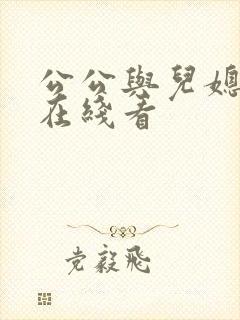 公公與兒媳
在綫看
党毅飛